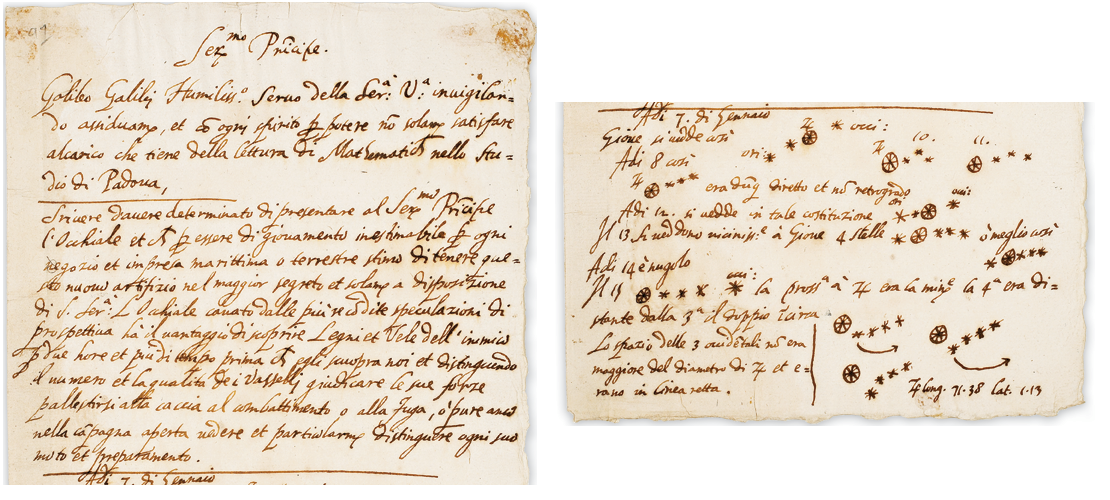 Ser.mo Prīcipe.
Galileo Galilej Humiliss.o Servo della Ser.a V.a invigilan=
do assiduam.e, et cō ogni spirito p potere nō solam.e satisfare
alcarico che tiene della lettura di Mathematich nello Stu=
dio di Padova,
Scrivere d'avere determinato di presentare al Ser.mo Prīcipe
l'Occhiale et ch p essere di giovamento inestimabile p ogni
negozio et impresa marittima o terrestre stimo di tenere que=
sto nuovo artifizio nel maggior segreto et solam.e a disposizione
di S. Ser.a L'Occhiale cavato dalle più recōdite speculazioni di
prospettiva ha il vantaggio di scoprire Legni et Vele dell'inimico
p due hore et più di tempo prima ch egli scuopra noi et distinguendo
il numero et la qualità de i Vasselli giudicare le sue forze
pallestirsi alla caccia al combattimento o alla fuga, o pure anco
nella cāpagna aperta vedere et particolarm.e distinguere ogni suo
moto et preparamento.
Adi 7. di Gennaio
Adi 7. di Gennaio
Giove si vedde così ♃ occi:
Adi 8 così ori: ♃ 10. 11.
♃ era dūq diretto et nō retrogrado
Adi 12. si vedde in tale costituzione ori occi:
Il 13 si veddono viciniss.e à Giove 4 stelle ò meglio così
Adi 14 è nugolo
Il 15 occi: la pross.a à ♃ era la min.e la 4.a era di=
stante dalla 3.a il doppio īcirca
Lo spazio delle 3 occidētali nō era
maggiore del diametro di ♃ et e=
rano in linea retta.
♃ long. 71.38 lat. 1.13